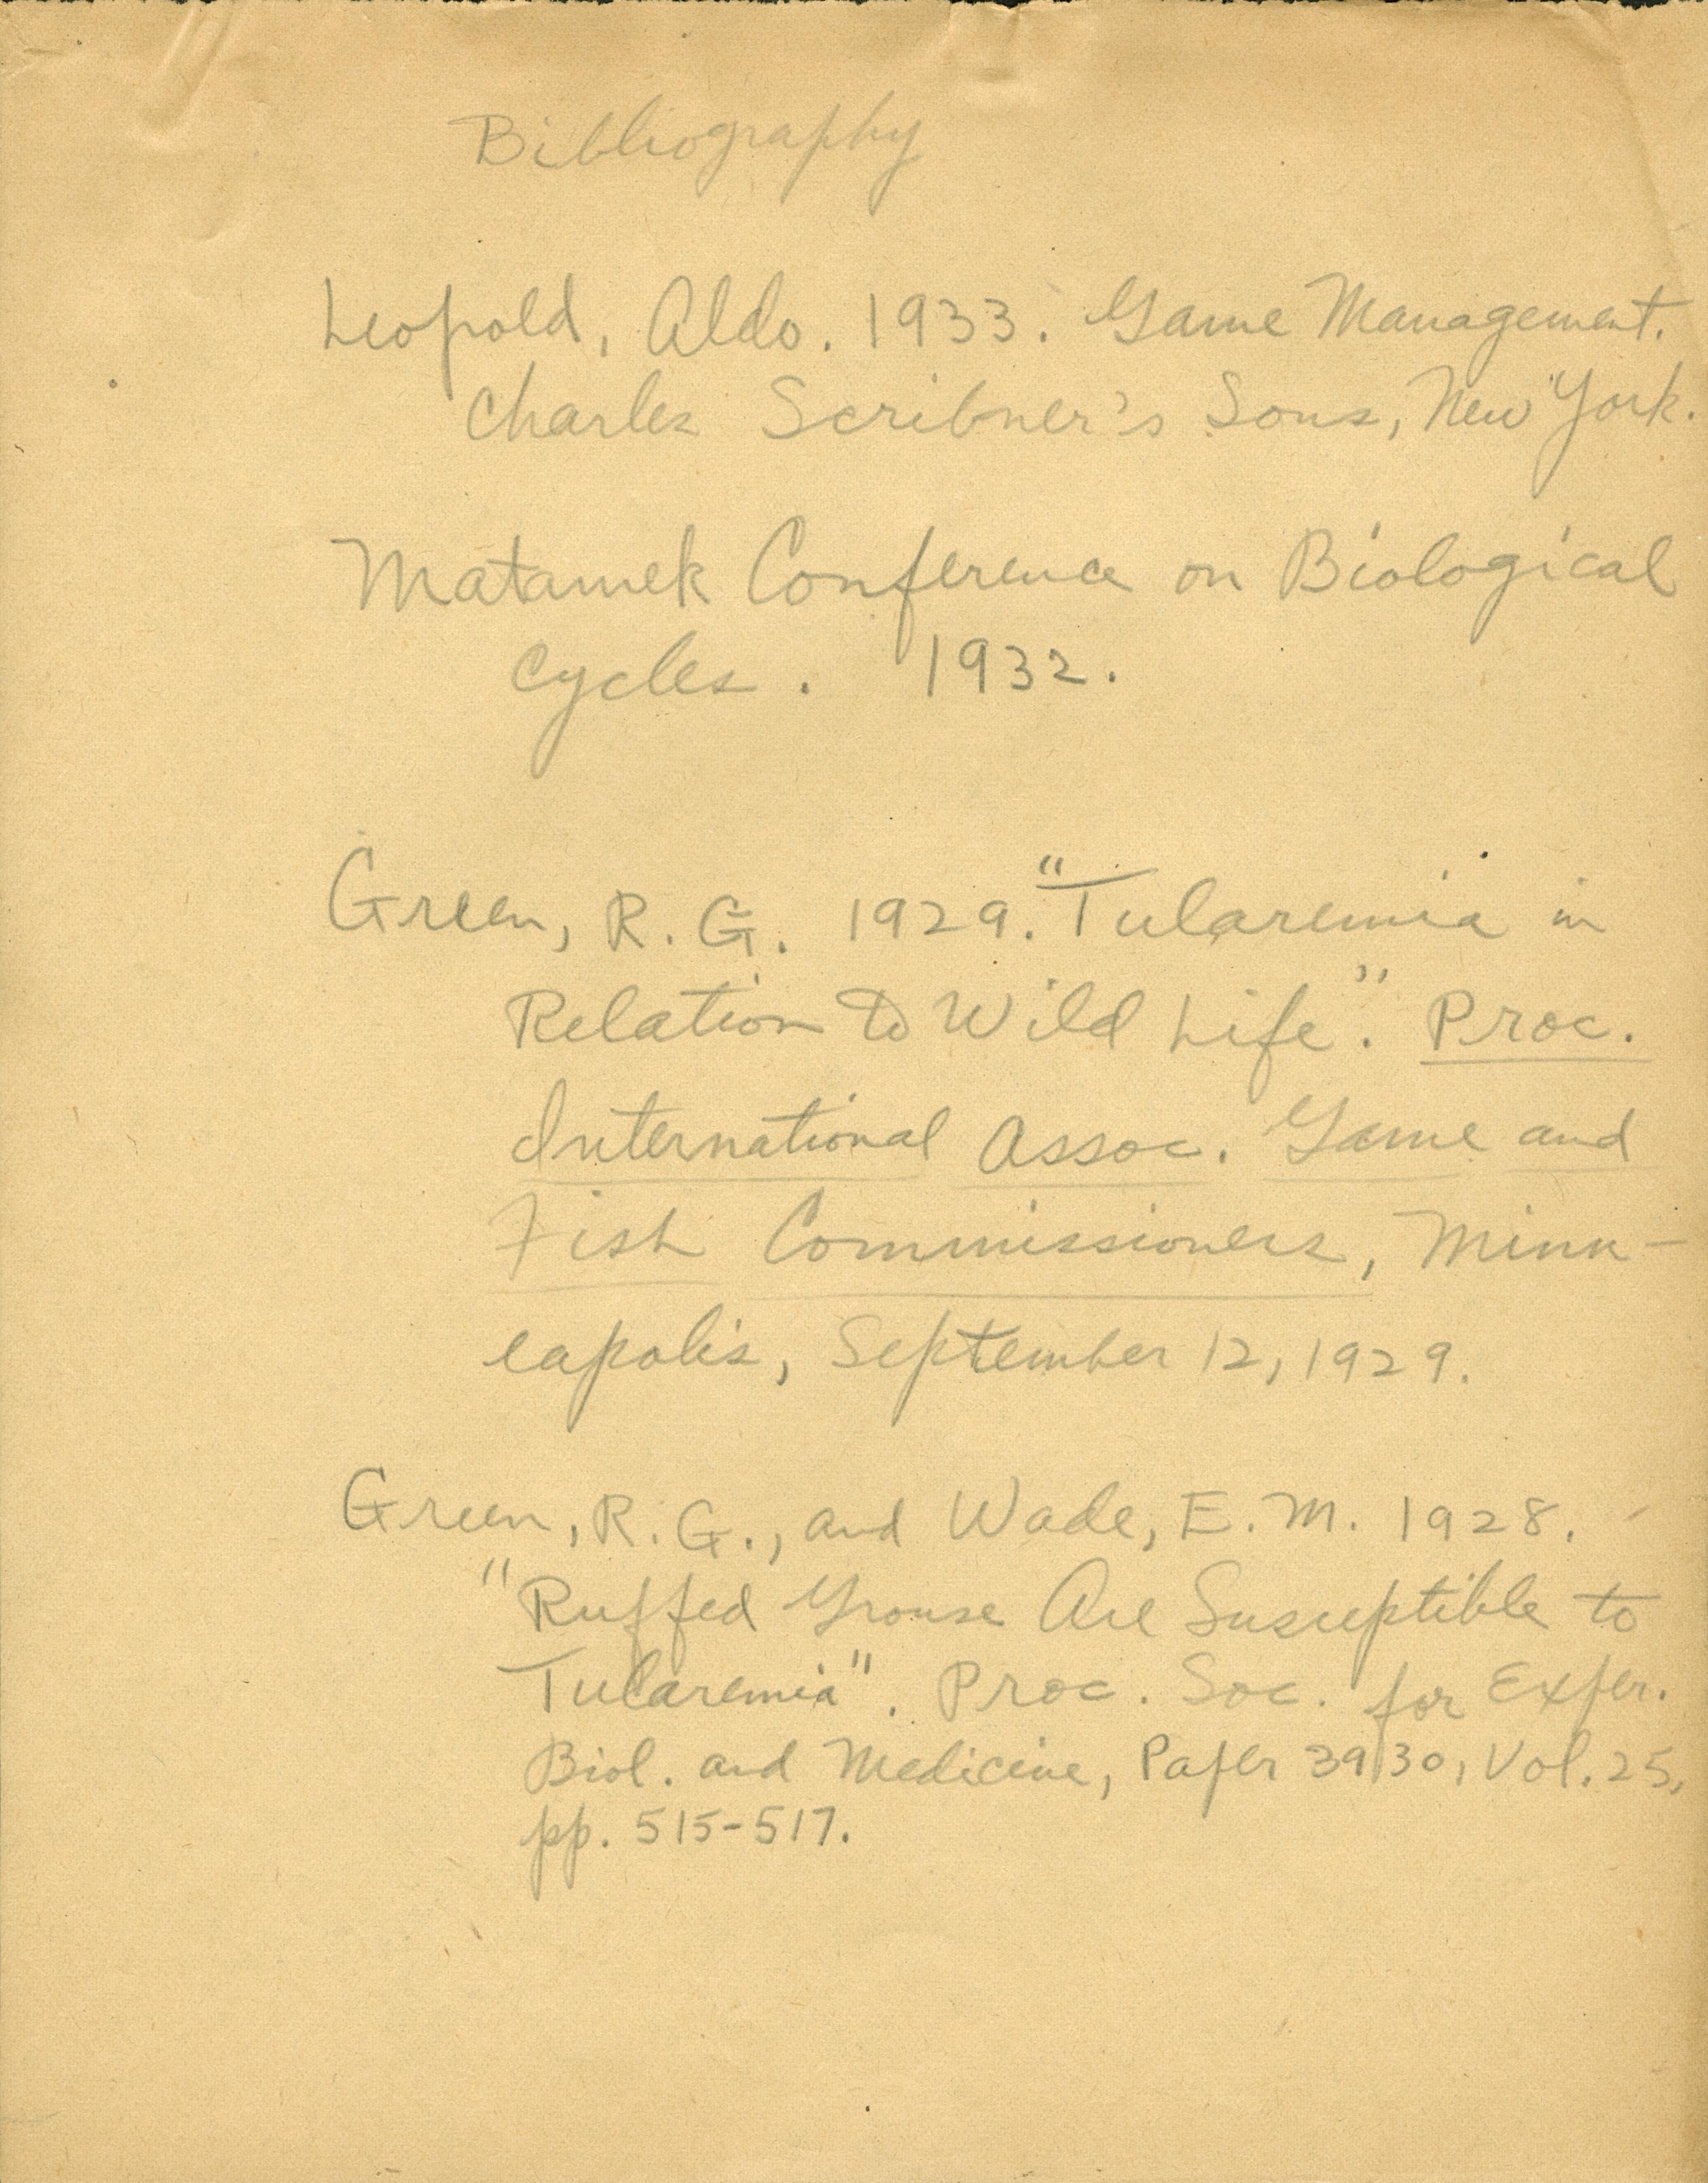 Bibliography
Leopold, Aldo. 1933. Game Management.
Charles Scribner's Sons, New York.
Matamek Conference on Biological
Cycles. 1932.
Green, R. G. 1929. "Tularemia in
Relation to Wild Life". Proc.
International Assoc. Game and
Fish Commissioners, Minn-
eapolis, September 12, 1929.
Green, R. G., and Wade, E. M. 1928.
"Ruffed Grouse Are Susceptible to
Tularemia". Proc. Soc. for Exper.
Biol. and Medicine, Paper 3930, Vol. 25,
pp. 515-517.